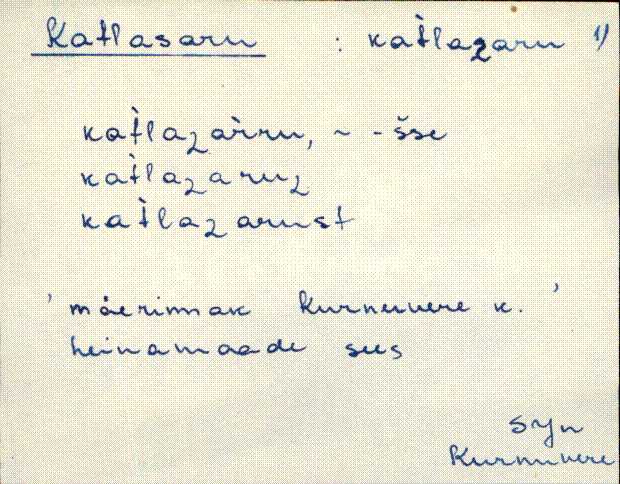 Katlasaru : kat̀lazaru 1)
kat̀lazàrru, ~ -šse
kat̀lazaruz
kat̀lazarust
' mäerinnak Kurnuvere k. '
heinamaade sees
SJn
Kurnuvere